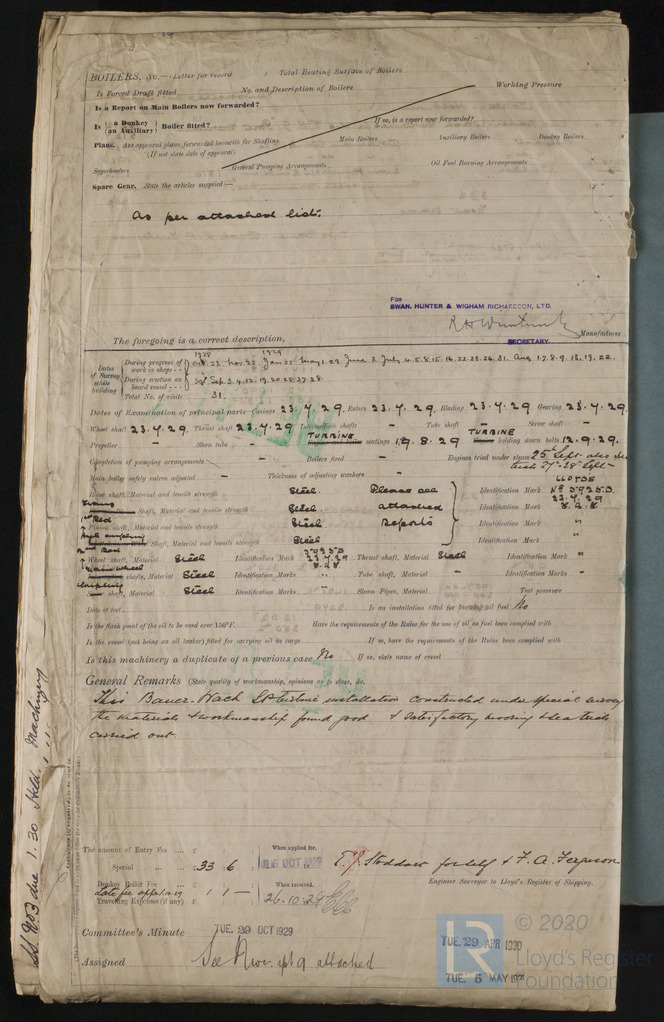 BOILERS, &c.—(Letter for record ) Total Heating Surface of Boilers
Is Forced Draft fitted No. and Description of Boilers Working Pressure
Is a Report on Main Boilers now forwarded?
Is { a Donkey / an Auxiliary } Boiler fitted? If so, is a report now forwarded?
Plans. Are approved plans forwarded herewith for Shafting Main Boilers Auxiliary Boilers Donkey Boilers
(If not state date of approval)
Superheaters General Pumping Arrangements Oil Fuel Burning Arrangements
Spare Gear. State the articles supplied:—
As per attached list.
FOR
SWAN, HUNTER & WIGHAM RICHARDSON, LTD.
The foregoing is a correct description, SECRETARY. Manufacturer.
1928 1929
Dates of Survey while building
During progress of work in shops - - Oct. 23. Nov. 22. Jan. 22. May 1. 29. June 3. July 4. 5. 8. 15. 16. 22. 23. 26. 31. Aug 1. 7. 8. 9. 13. 19. 22.
During erection on board vessel - - Sep. 3. 4. 12. 19. 20. 25. 27. 28.
Total No. of visits 31.
Dates of Examination of principal parts—Casings 23.7.29. Rotors 23.7.29. Blading 23.7.29 Gearing 23.7.29.
Wheel shaft 23.7.29. Thrust shaft 23.7.29 Intermediate shafts - Tube shaft - Screw shaft -
Propeller - Stern tube - TURBINE seatings 19.8.29 TURBINE holding down bolts 12.9.29.
Completion of pumping arrangements - Boilers fixed - Engines tried under steam 25th Sept. also sea trials 27th-28th Sept-
Main boiler safety valves adjusted - Thickness of adjusting washers -
Rotor shaft, Material and tensile strength Steel. Please see Identification Mark
Shaft, Material and tensile strength Steel attached Identification Mark
1st Red Pinion shaft, Material and tensile strength Steel Reports Identification Mark "
Shaft, Material and tensile strength Steel Identification Mark "
2nd Red Wheel shaft, Material Steel Identification Mark 23.7.29 Thrust shaft, Material Steel Identification Mark "
shafts, Material Steel Identification Marks " Tube shaft, Material - Identification Marks -
shaft, Material Steel Identification Marks " Steam Pipes, Material Test pressure
Date of test Is an installation fitted for burning oil fuel No
Is the flash point of the oil to be used over 150°F. Have the requirements of the Rules for the use of oil as fuel been complied with
Is the vessel (not being an oil tanker) fitted for carrying oil as cargo If so, have the requirements of the Rules been complied with
Is this machinery a duplicate of a previous case No If so, state name of vessel
General Remarks (State quality of workmanship, opinions as to class, &c.
This Bauer-Wach LP turbine installation constructed under special survey
the materials & workmanship found good & satisfactory mooring & sea trials
carried out.
The amount of Entry Fee ... £ When applied for,
Special ... £ 33 . 6 OCT 1929 T. J. Stoddart for self & F. A. Ferguson
Donkey Boiler Fee ... £ When received, Engineer Surveyor to Lloyd's Register of Shipping.
Travelling Expenses (if any) £ 1 1 - 26.10.29
Committee's Minute TUE. 29 OCT 1929 TUE. 29 APR 1930
Assigned See attached TUE. 6 MAY
© 2020
Lloyd's Register
Foundation